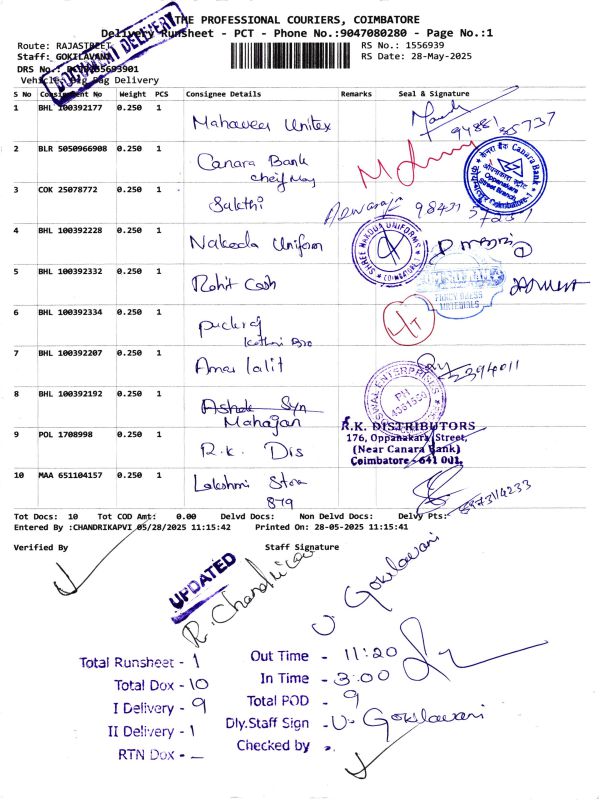 THE PROFESSIONAL COURIERS, COIMBATORE
Delivery Runsheet - PCT - Phone No.:9047080280 - Page No.:1
DOCUMENT DELIVERY
Route: RAJASTREET
RS No.: 1556939
Staff: GOKILAVANI
RS Date: 28-May-2025
DRS No.:
Vehicle: Big Bag Delivery
S No Consignment No Weight PCS Consignee Details Remarks Seal & Signature
1 BHL 100392177 0.250 1 Mahaveer Unitex
94881 35737
2 BLR 5050966908 0.250 1 Canara Bank
Oppanakara
Street Branch
Coimbatore-1
3 COK 25078772 0.250 1 Sakthi
4 BHL 100392228 0.250 1 Nakoda Uniform
SHREE NAKODA UNIFORMS
COIMBATORE
5 BHL 100392332 0.250 1 Rohit Cash
FANCY DRESS
MATERIALS
6 BHL 100392334 0.250 1
Kothri Bro
7 BHL 100392207 0.250 1 Amar lalit
8 BHL 100392192 0.250 1 Ashok Syn
Mahajan
ENTERPRISES
9 POL 1708998 0.250 1 R.K. Dis
R.K. DISTRIBUTORS
176, Oppanakara Street,
(Near Canara Bank)
Coimbatore - 641 001.
10 MAA 651104157 0.250 1 Lakshmi Store
879
Tot Docs: 10 Tot COD Amt: 0.00 Delvd Docs: Non Delvd Docs: Delvy Pts:
Entered By :CHANDRIKAPVI 05/28/2025 11:15:42 Printed On: 28-05-2025 11:15:41
Verified By Staff Signature
UPDATED
R. Chandrica
U. Gokilavani
Total Runsheet - 1
Total Dox - 10
I Delivery - 9
II Delivery - 1
RTN Dox - —
Out Time - 11:20
In Time - 3:00
Total POD - 9
Dly.Staff Sign - U. Gokilavani
Checked by -